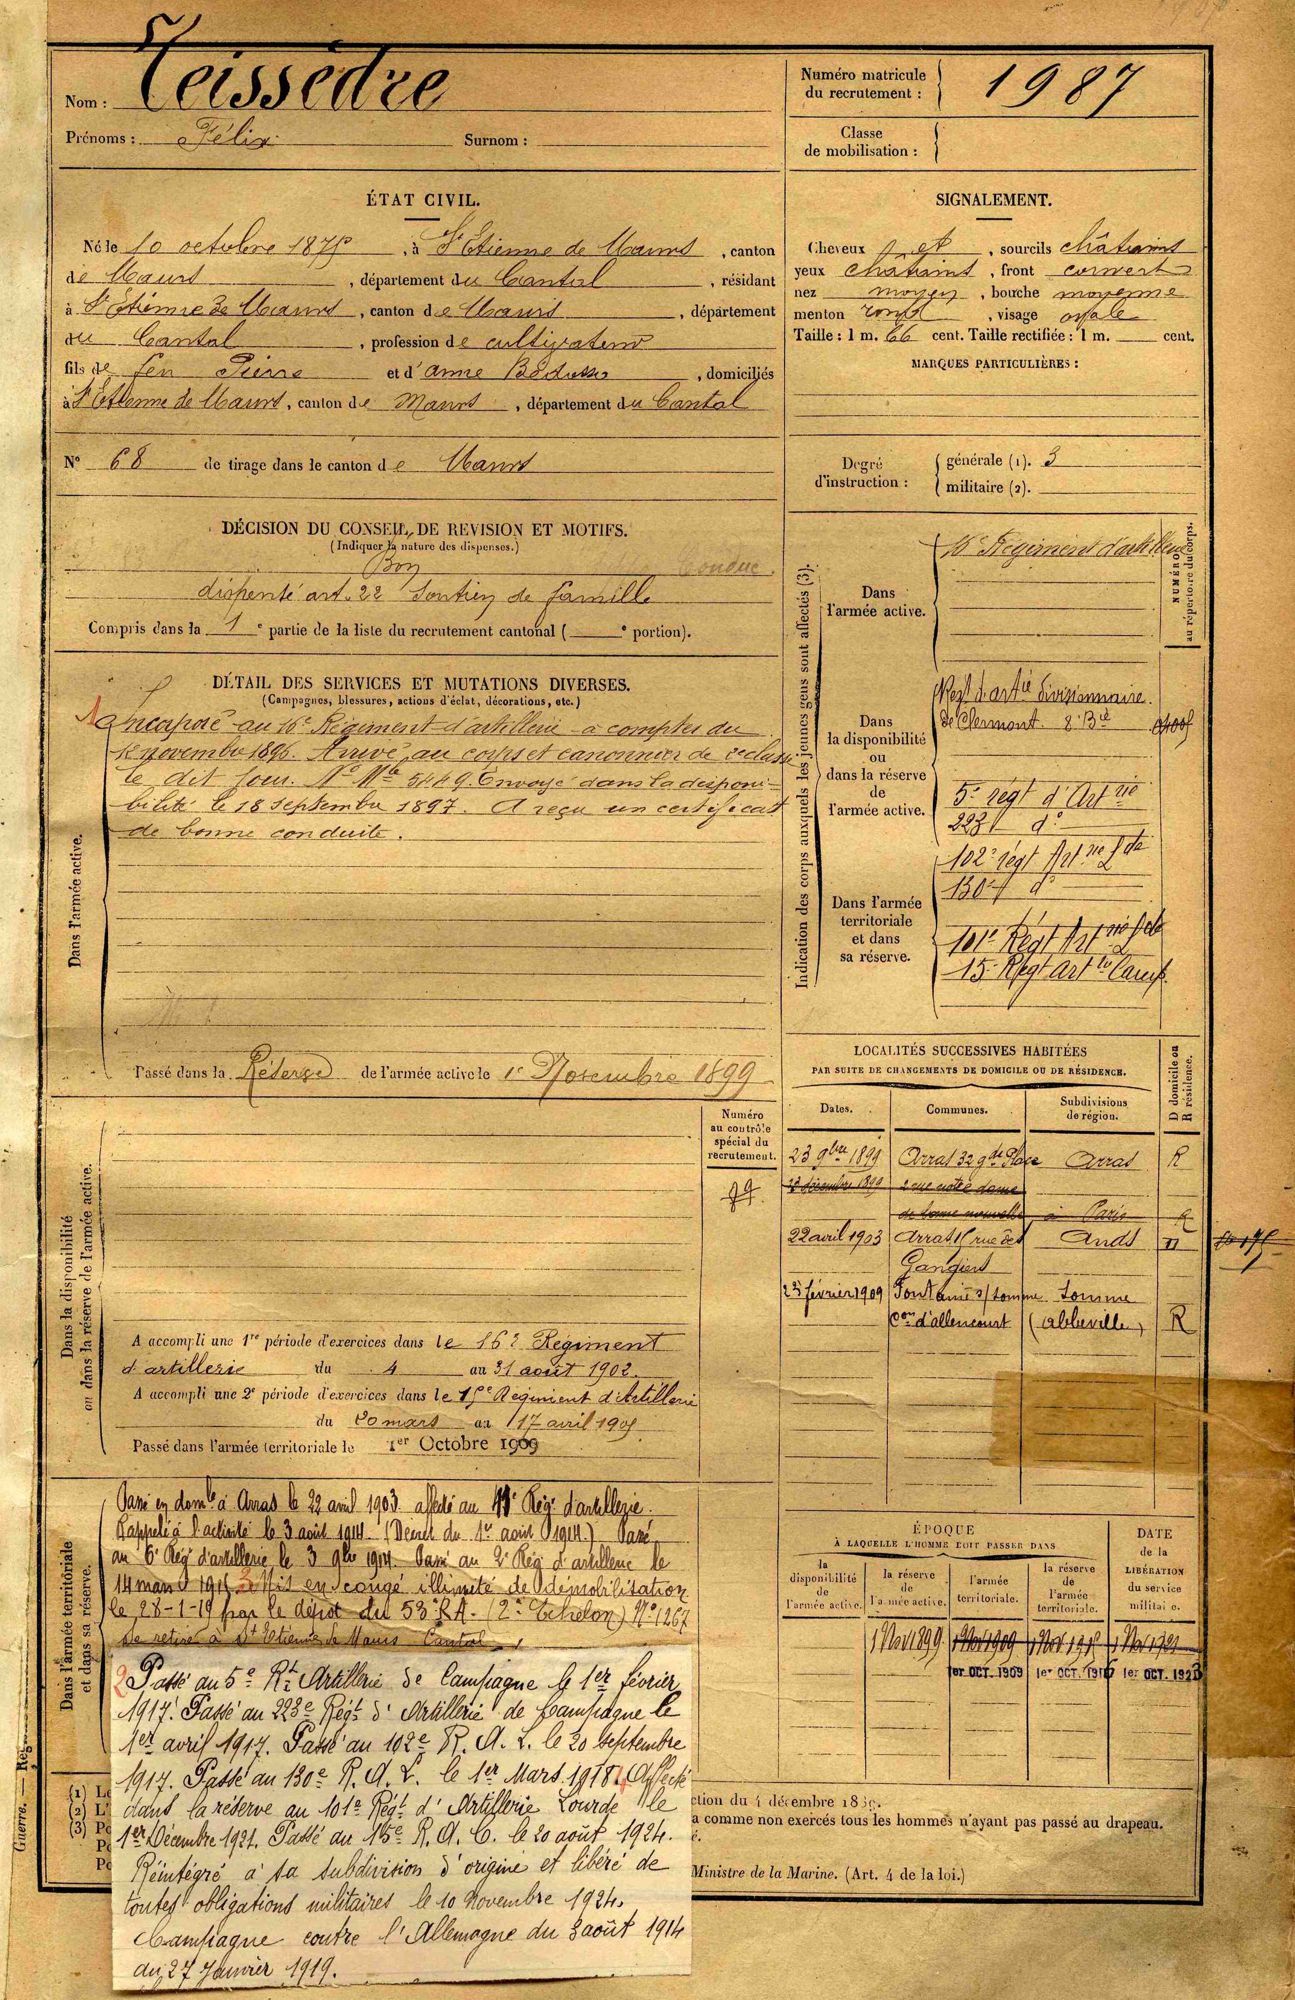 Nom : Teissèdre
Prénoms : Félix Surnom :
Numéro matricule
du recrutement : 1987
Classe
de mobilisation :
ÉTAT CIVIL.
Né le 10 octobre 1875, à St Etienne de Maurs, canton
de Maurs, département du Cantal, résidant
à St Etienne de Maurs, canton de Maurs, département
du Cantal, profession de cultivateur
fils de feu Pierre et d'anne, domiciliés
à St Etienne de Maurs, canton de Maurs, département du Cantal
N° 68 de tirage dans le canton de Maurs
SIGNALEMENT.
Cheveux et, sourcils châtains
yeux châtains, front couvert
nez moyen, bouche moyenne
menton rond, visage ovale
Taille : 1 m. 66 cent. Taille rectifiée : 1 m. cent.
MARQUES PARTICULIÈRES :
Degré
d'instruction :
générale (1). 3
militaire (2).
DÉCISION DU CONSEIL DE REVISION ET MOTIFS.
(Indiquer la nature des dispenses.)
Bon
dispensé art. 22 Soutien de famille
Compris dans la 1e partie de la liste du recrutement cantonal ( e portion).
DÉTAIL DES SERVICES ET MUTATIONS DIVERSES.
(Campagnes, blessures, actions d'éclat, décorations, etc.)
Dans l'armée active.
1 Incorporé au 16e Régiment d'artillerie à compter du
12 novembre 1896. Arrivé au corps et canonnier de 2e classe
le dit jour. No Mle 5449. Envoyé dans la disponi-
bilité le 18 septembre 1897. A reçu un certificat
de bonne conduite.
Passé dans la Réserve de l'armée active le 1er Novembre 1899
Indication des corps auxquels les jeunes gens sont affectés (3).
NUMÉRO
au répertoire du corps.
Dans
l'armée active.
16e Régiment d'artillerie
Dans
la disponibilité
ou
dans la réserve
de
l'armée active.
Regt d'artie divisionnaire
de Clermont. 8e Bie
5e régt d'Artrie
223e do
Dans l'armée
territoriale
et dans
sa réserve.
102e régt Artrie Lde
130e do
101e Régt Artrie Lde
15e Régt Artie Camp.
LOCALITÉS SUCCESSIVES HABITÉES
PAR SUITE DE CHANGEMENTS DE DOMICILE OU DE RÉSIDENCE.
Dates. Communes. Subdivisions
de région. D domicile ou
R résidence.
23 9bre 1899 Arras 32 gde Place Arras R
décembre 1899 2 rue notre dame
de bonne nouvelle à Paris R
22 avril 1903 Arras rue des D
23 février 1909 Fontaine s/ Somme Somme
Con d'allencourt (Abbeville) R
Numéro
au contrôle
spécial du
recrutement.
Dans la disponibilité
ou dans la réserve de l'armée active.
A accompli une 1re période d'exercices dans le 16e Régiment
d'artillerie du 4 au 31 août 1902.
A accompli une 2e période d'exercices dans le 15e Régiment d'Artillerie
du 20 mars au 17 avril 1905
Passé dans l'armée territoriale le 1er Octobre 1909
Dans l'armée territoriale
et dans sa réserve.
Passé en domle à Arras le 22 avril 1903 affecté au Régt d'artillerie.
Rappelé à l'activité le 3 août 1914. (Décret du 1er août 1914.) Passé
au 6e Régt d'artillerie le 3 9bre 1914. Passé au 2e Régt d'artillerie le
14 mars 1915 3 Mis en congé illimité de démobilisation
le 28-1-19 par le dépôt du 53e RA. (2e Echelon) No 1267
Se retire à St Etienne de Maurs Cantal
2 Passé au 5e Rt Artillerie de Campagne le 1er février
1917. Passé au 223e Régt d'Artillerie de Campagne le
1er avril 1917. Passé au 102e R. A. L. le 20 septembre
1917. Passé au 130e R. A. L. le 1er Mars 1918. 4 Affecté
dans la réserve au 101e Régt d'Artillerie Lourde le
1er Décembre 1921. Passé au 15e R. A. C. le 20 août 1924.
Réintégré à sa subdivision d'origine et libéré de
toutes obligations militaires le 10 novembre 1924.
Campagne contre l'Allemagne du 3 août 1914
au 27 Janvier 1919.
ÉPOQUE
À LAQUELLE L'HOMME DOIT PASSER DANS
la
disponibilité
de
l'armée active.
la réserve
de
l'armée active.
l'armée
territoriale.
la réserve
de
l'armée
territoriale.
DATE
de la
LIBÉRATION
du service
militaire.
1 Nov 1899 1 Nov 1909 1 Nov 1915 1 Nov 1921
1er OCT. 1909 1er OCT. 1er OCT. 192
(1) Le
(2) L'
(3) Po
ction du 4 décembre 18
a comme non exercés tous les hommes n'ayant pas passé au drapeau.
Ministre de la Marine. (Art. 4 de la loi.)
Guerre. — Reg